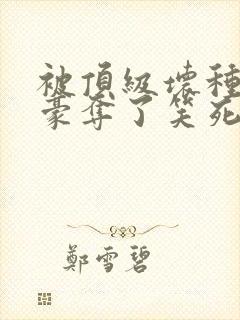 被頂級壞種
豪奪了笑死
鄭雪碧